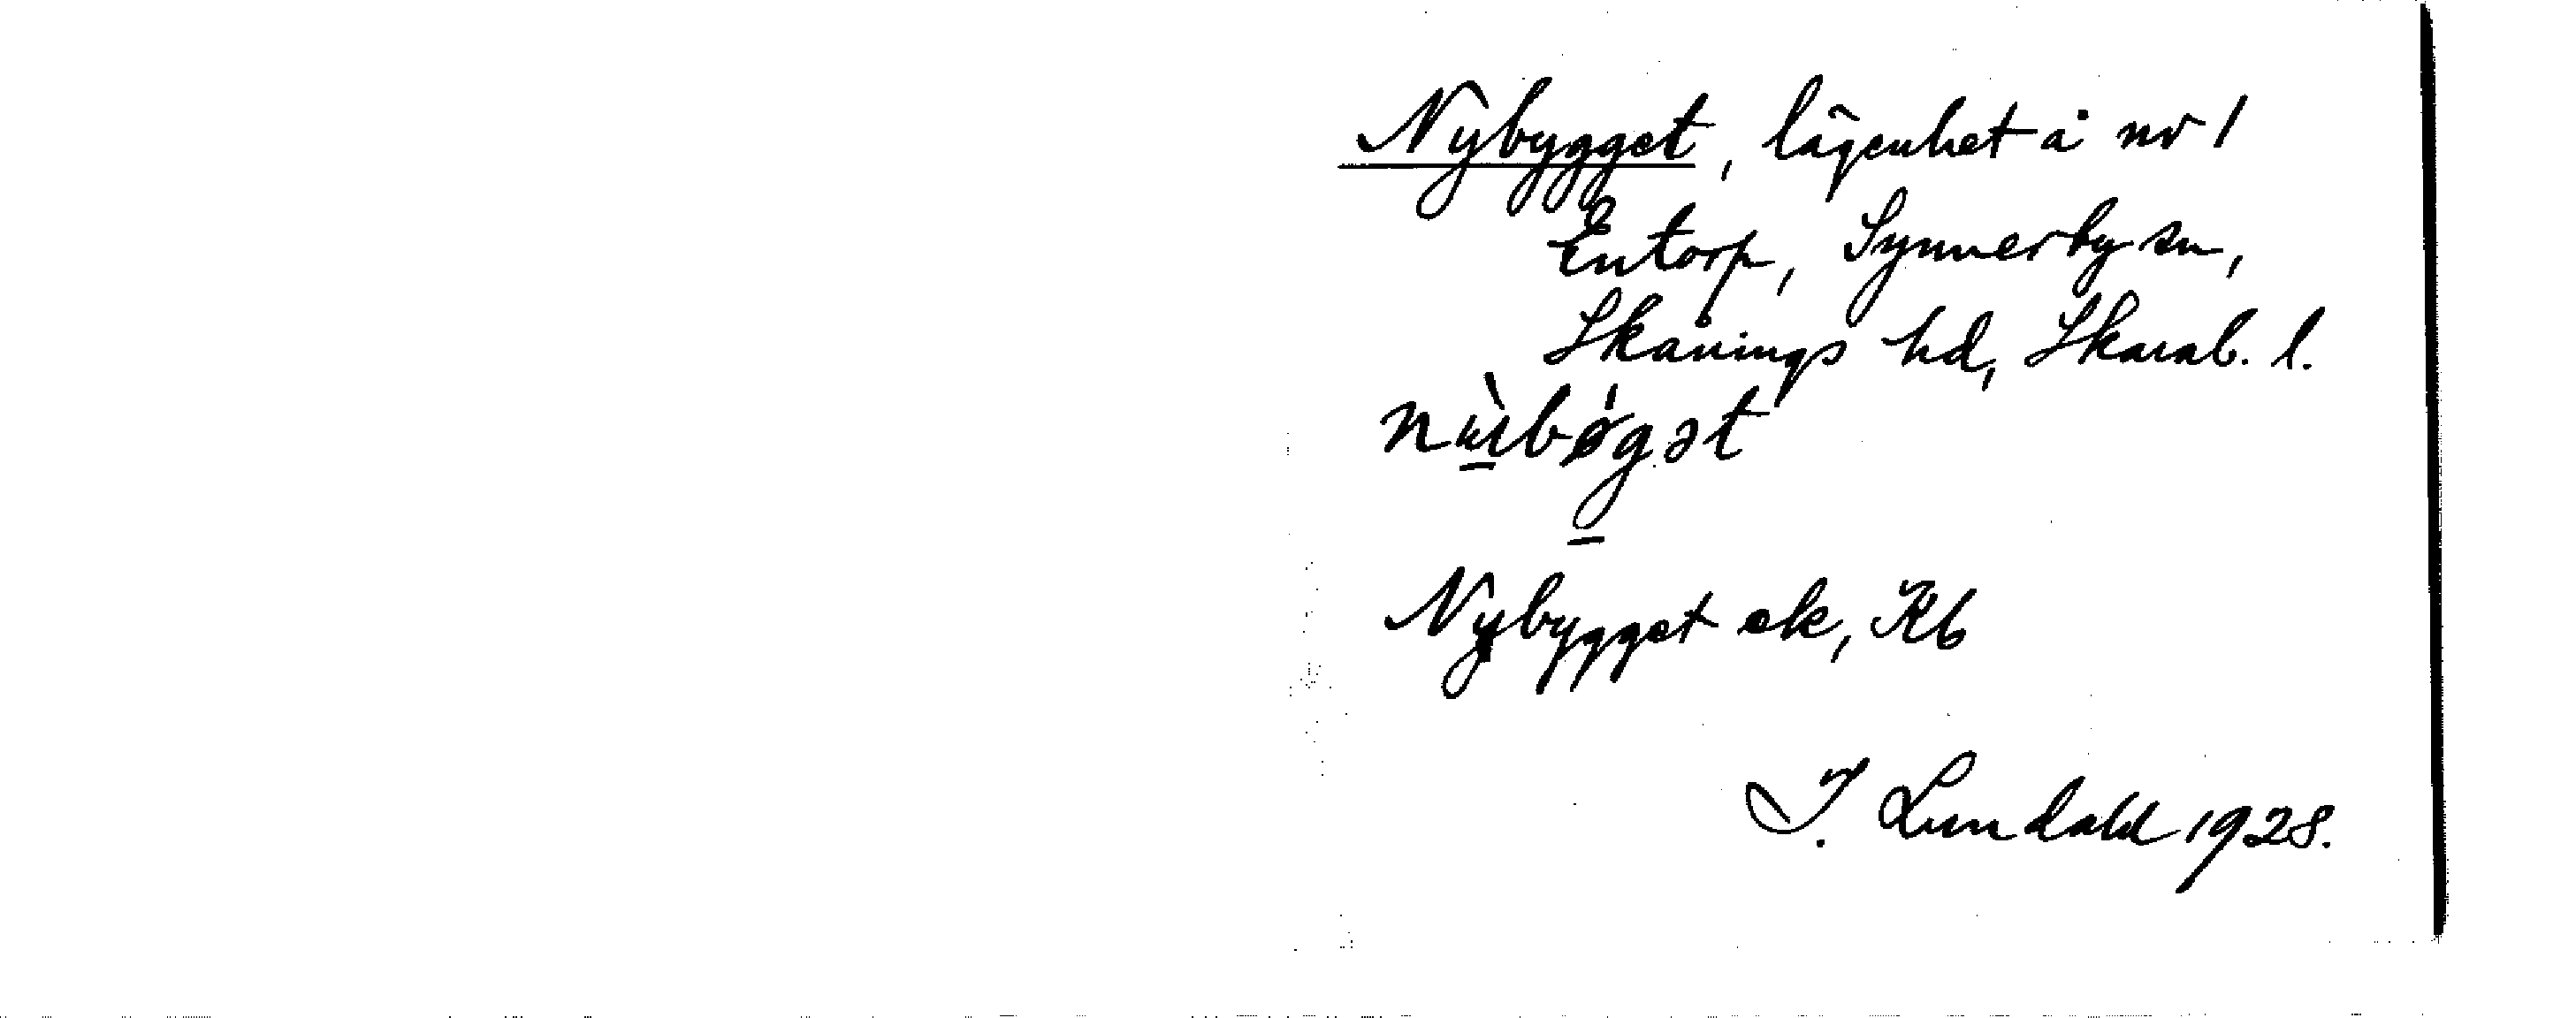 Nybygget, lägenhet å nr 1
Entorp, Synnerby sn,
Skånings hd, Skarab. l.
Nybygget ek, Kb
I. Lundahl 1928.